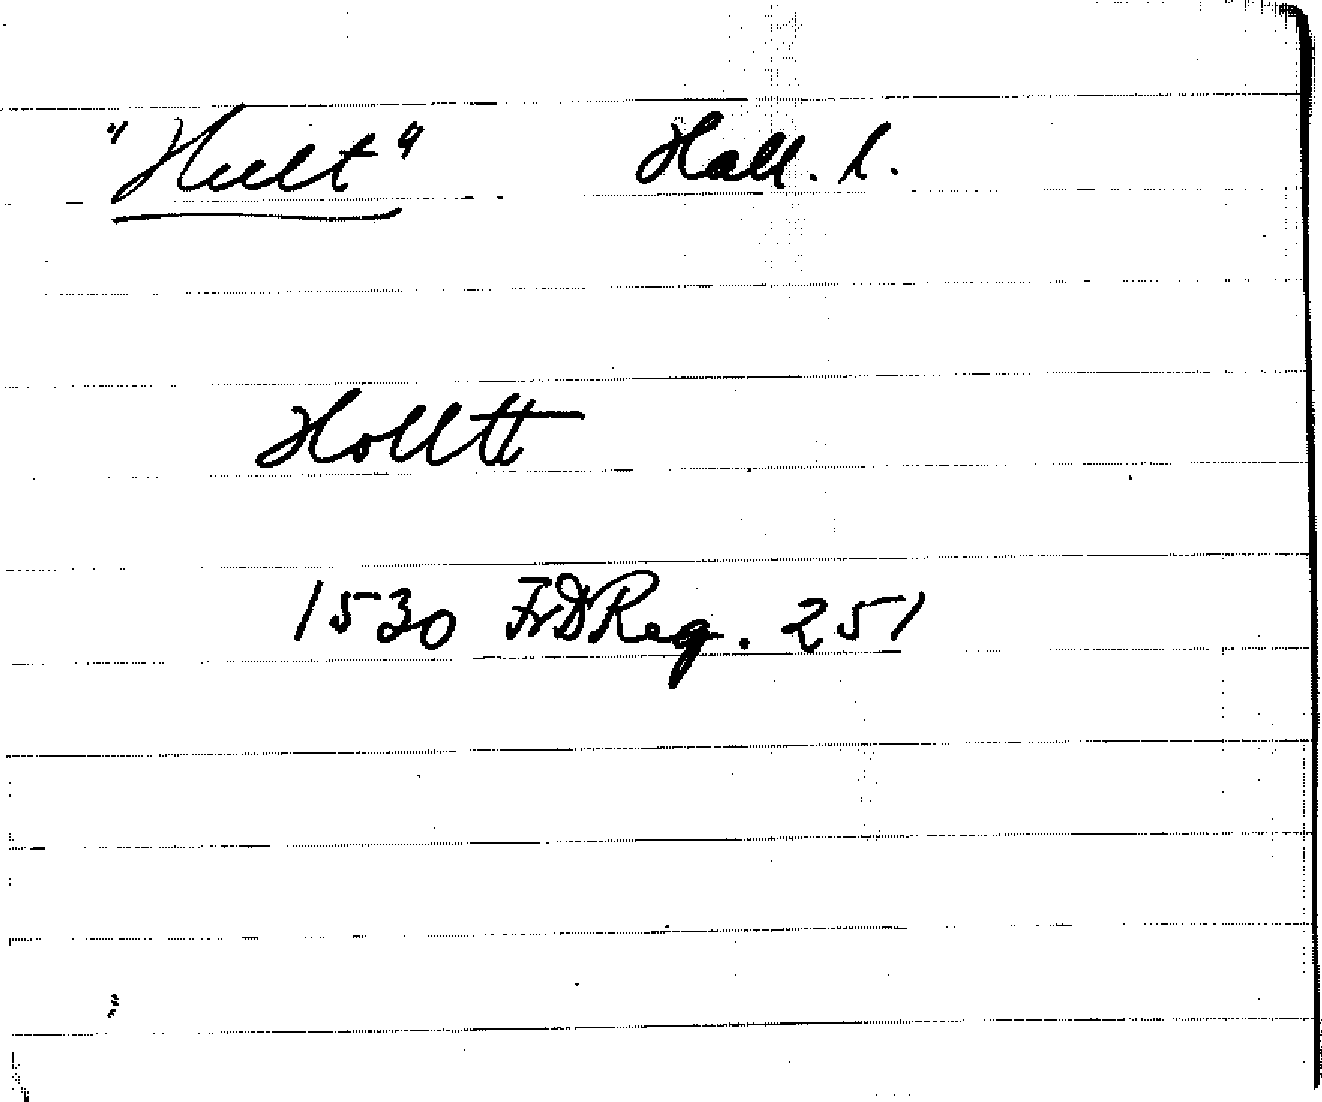 "Hult" Hall. l.
Holltt
1530 FrDReg. 251